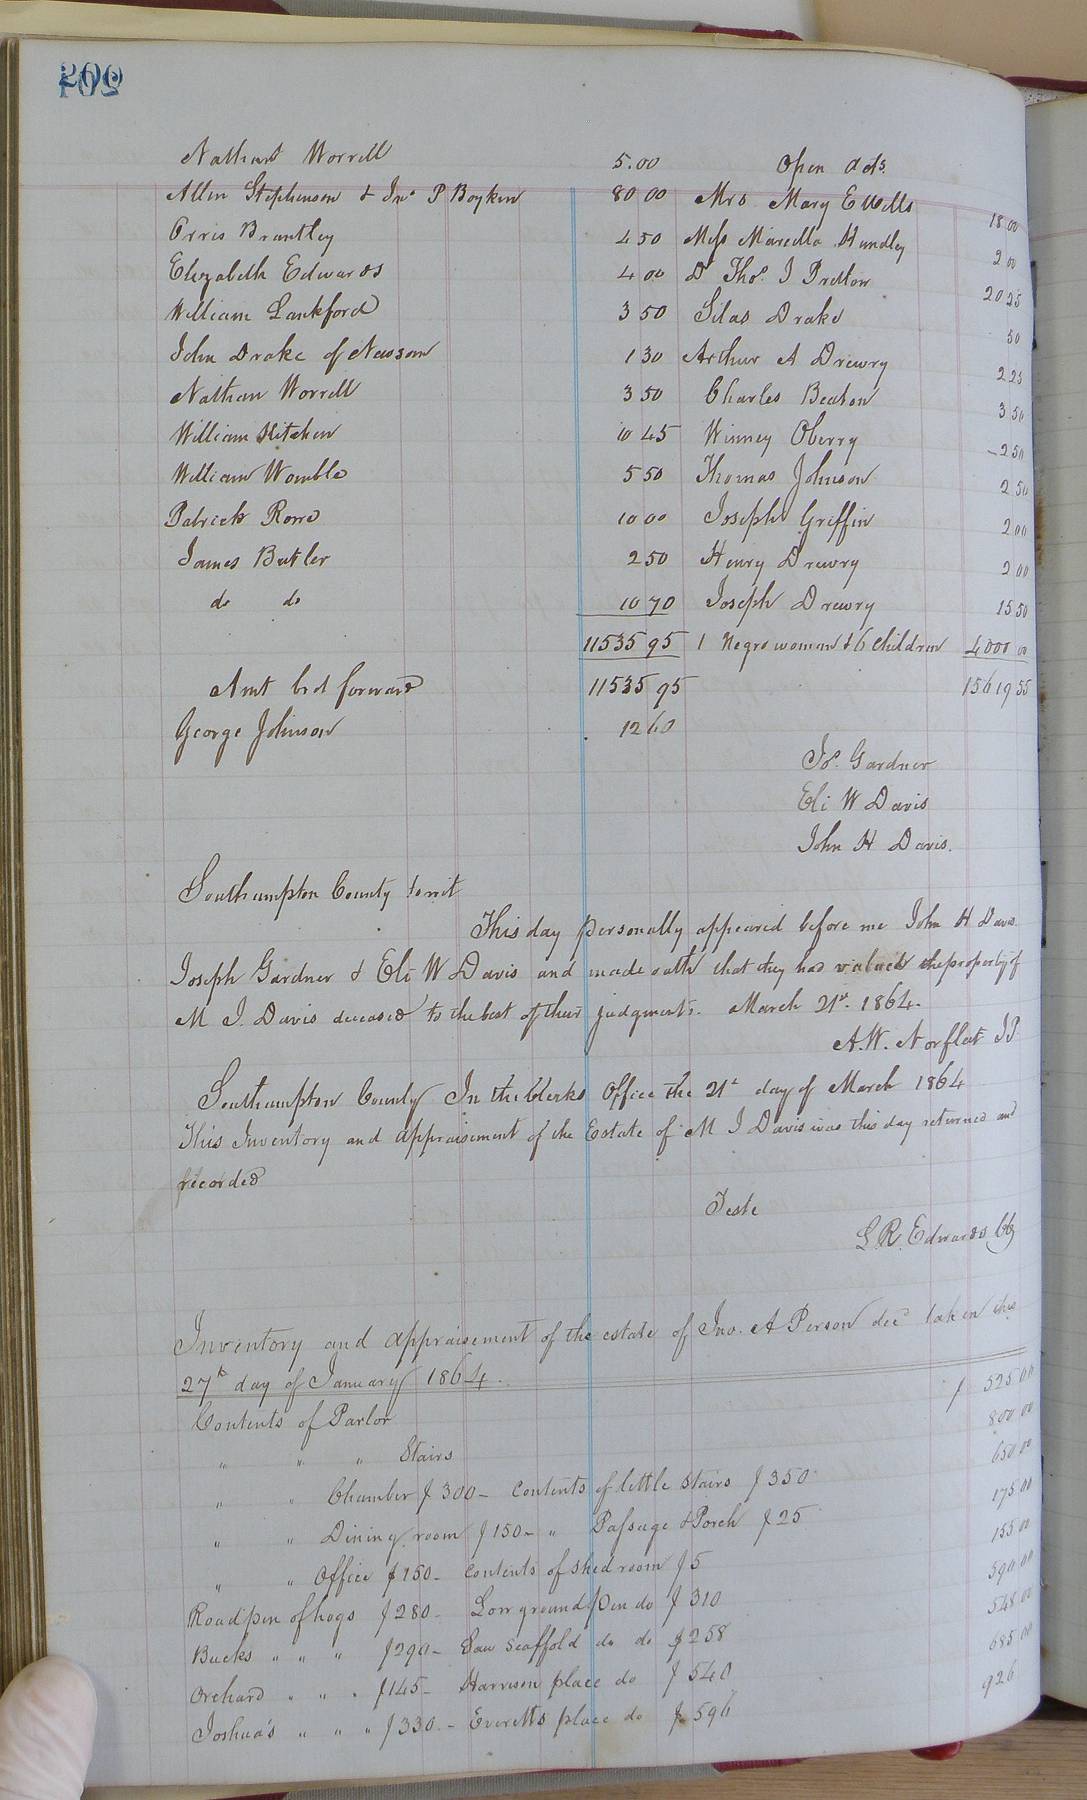 Nathan Worrell 5.00 Open acts
Allen Stephenson & Jno P Boykin 80 00 Mrs Mary E Wells 18 00
Orris Brantley 4 50 Miss Marcella Hundley 2 00
Elizabeth Edwards 4 00 Dr Thos. J Pretlow 20 25
William Lankford 3 50 Silas Drake 50
John Drake of Newsom 1 30 Arthur A Drewry 2 25
Nathan Worrell 3 50 Charles Beaton 3 50
William Kitchen 10 45 Winney Oberry 2 50
William Womble 5 50 Thomas Johnson 2 50
Patrick Rowe 10 00 Joseph Griffin 2 00
James Butler 2 50 Henry Drewry 2 00
do do 10 70 Joseph Drewry 15 50
11535 95 1 Negro woman & 6 Children 4000 00
Amt brd forward 11535 95 15619 55
George Johnson 12 60
Jo. Gardner
Eli W Davis
John H Davis.
Southampton County to wit
This day personally appeared before me John H Davis
Joseph Gardner & Eli W Davis and made oath that they had valued the property of
M J. Davis deceased to the best of their judgments. March 21st. 1864.
A.W. Norfleet JP
Southampton County In the Clerks Office the 21st day of March 1864
This Inventory and appraisement of the Estate of M J Davis was this day returned and
recorded
Teste
L R. Edwards Clk
Inventory and appraisement of the estate of Jno. A Person decd taken this
27th day of January 1864.
Contents of Parlor $ 525 00
" " " Stairs 800 00
" " Chamber $300 - Contents of little Stairs $350 650 00
" " Dining room $150 - " Passage & Porch $25 175 00
" " Office $150 - Contents of shed room $5 155 00
Road pen of hogs $280 - Low ground Pen do $310 590 00
Bucks " " " $290 - Saw Scaffold do do $258 548 00
Orchard " " " $145 - Harrison place do $540 685 00
Joshua's " " " $330 - Everetts place do $596 926